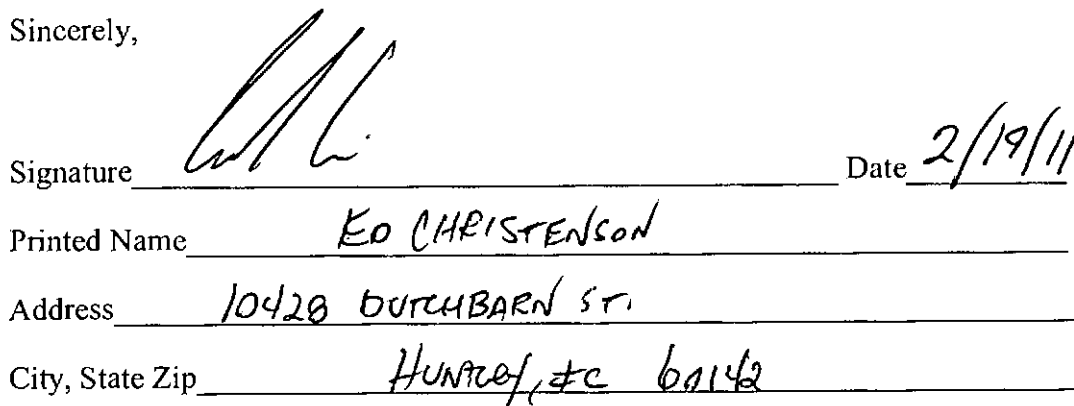 Sincerely,
Signature Date 2/19/11
Printed Name ED CHRISTENSON
Address 10428 DUTCHBARN ST.
City, State Zip HUNTLEY, IL 60142